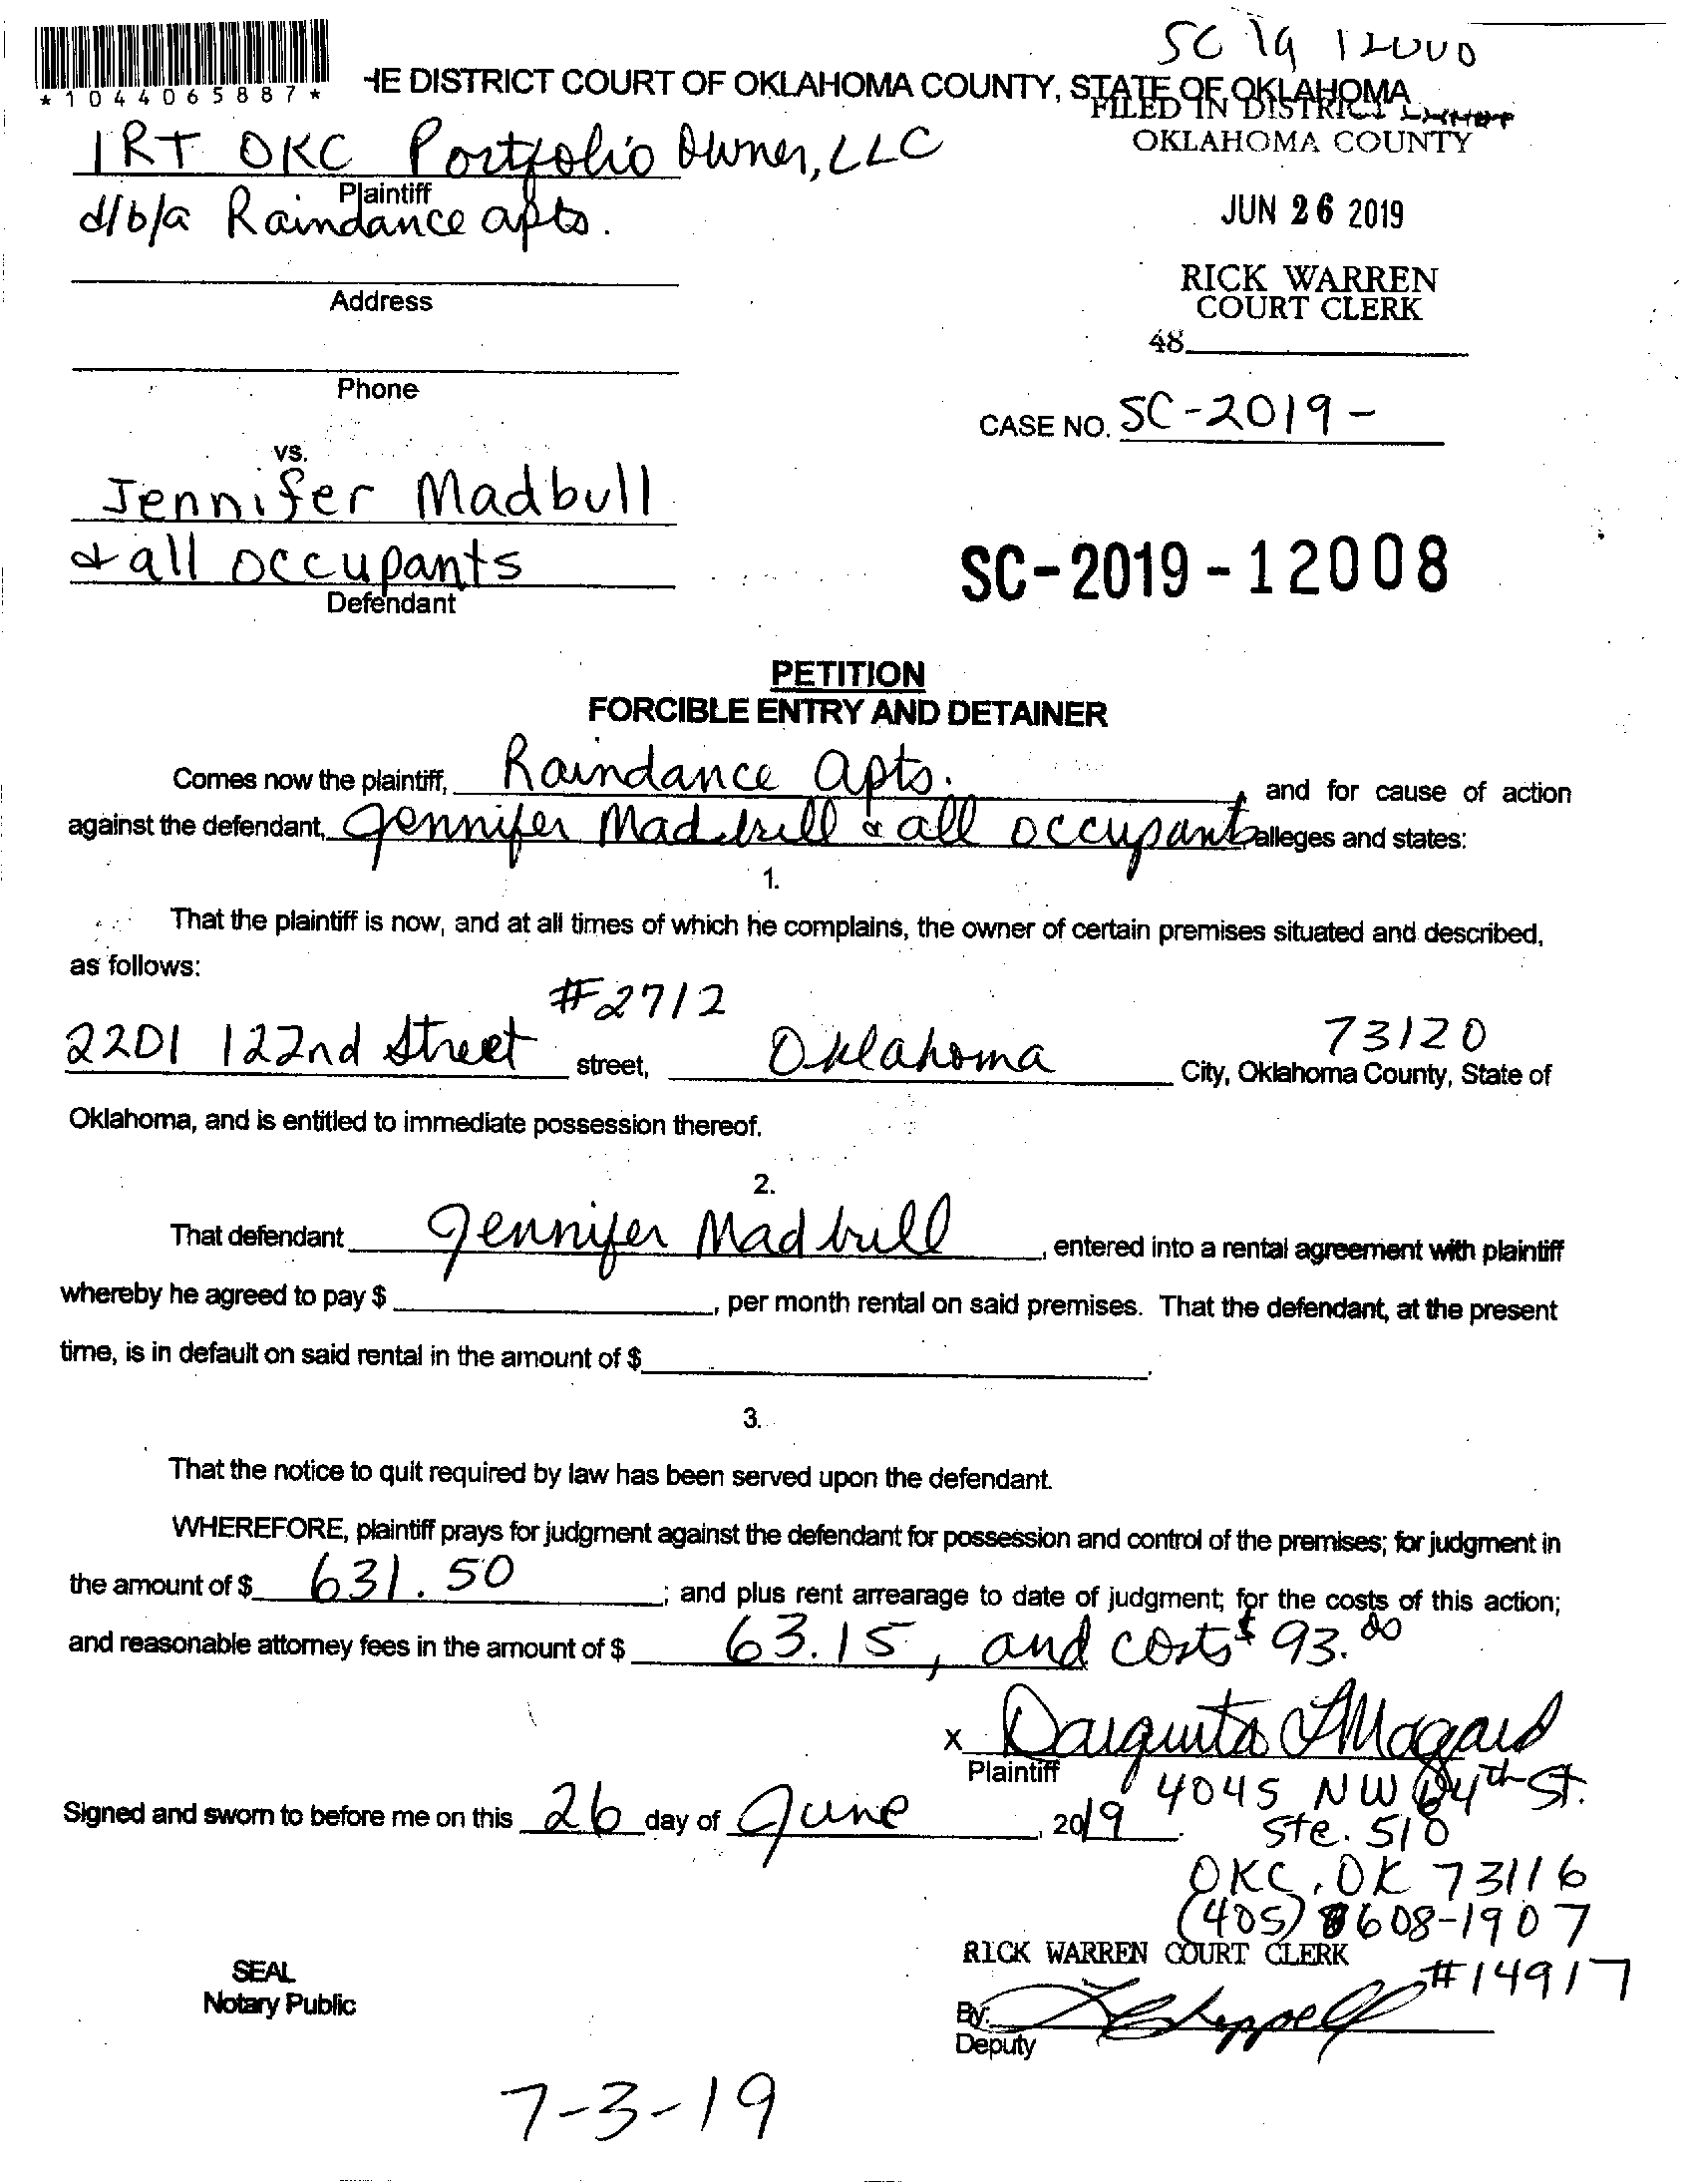 SC 19 12000
*1044065887*
HE DISTRICT COURT OF OKLAHOMA COUNTY, STATE OF OKLAHOMA
FILED IN DISTRICT COURT
OKLAHOMA COUNTY
IRT OKC Portfolio Owner, LLC
Plaintiff
d/b/a Raindance apts.
JUN 26 2019
RICK WARREN
COURT CLERK
Address
48
Phone
CASE NO. SC-2019-
vs.
Jennifer Madbull
& all occupants
Defendant
SC-2019-12008
PETITION
FORCIBLE ENTRY AND DETAINER
Comes now the plaintiff, Raindance apts. and for cause of action
against the defendant, Jennifer Madbull & all occupants alleges and states:
1.
That the plaintiff is now, and at all times of which he complains, the owner of certain premises situated and described,
as follows:
#2712
2201 122nd Street street, Oklahoma 73120 City, Oklahoma County, State of
Oklahoma, and is entitled to immediate possession thereof.
2.
That defendant Jennifer Madbull, entered into a rental agreement with plaintiff
whereby he agreed to pay $ , per month rental on said premises. That the defendant, at the present
time, is in default on said rental in the amount of $ .
3.
That the notice to quit required by law has been served upon the defendant.
WHEREFORE, plaintiff prays for judgment against the defendant for possession and control of the premises; for judgment in
the amount of $ 631.50 ; and plus rent arrearage to date of judgment; for the costs of this action;
and reasonable attorney fees in the amount of $ 63.15, and costs $ 93.00
x
Plaintiff
4045 NW 64th St.
Signed and sworn to before me on this 26 day of June, 2019.
Ste. 510
OKC, OK 73116
(405) 608-1907
RICK WARREN COURT CLERK
#14917
SEAL
Notary Public
By:
Deputy
7-3-19